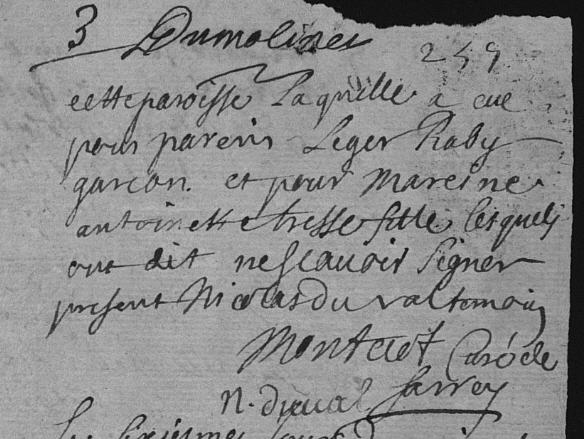 3 Dumolinet 249
cette paroisse Laquelle a eue
pour parein Leger Raby
garcon. et pour mareine
antoinette tresse fille lesquels
ont dit nescauoir signer
present Nicolas du val temoin
Curé de
n. duual Sarrey
Le sixiesme Jour